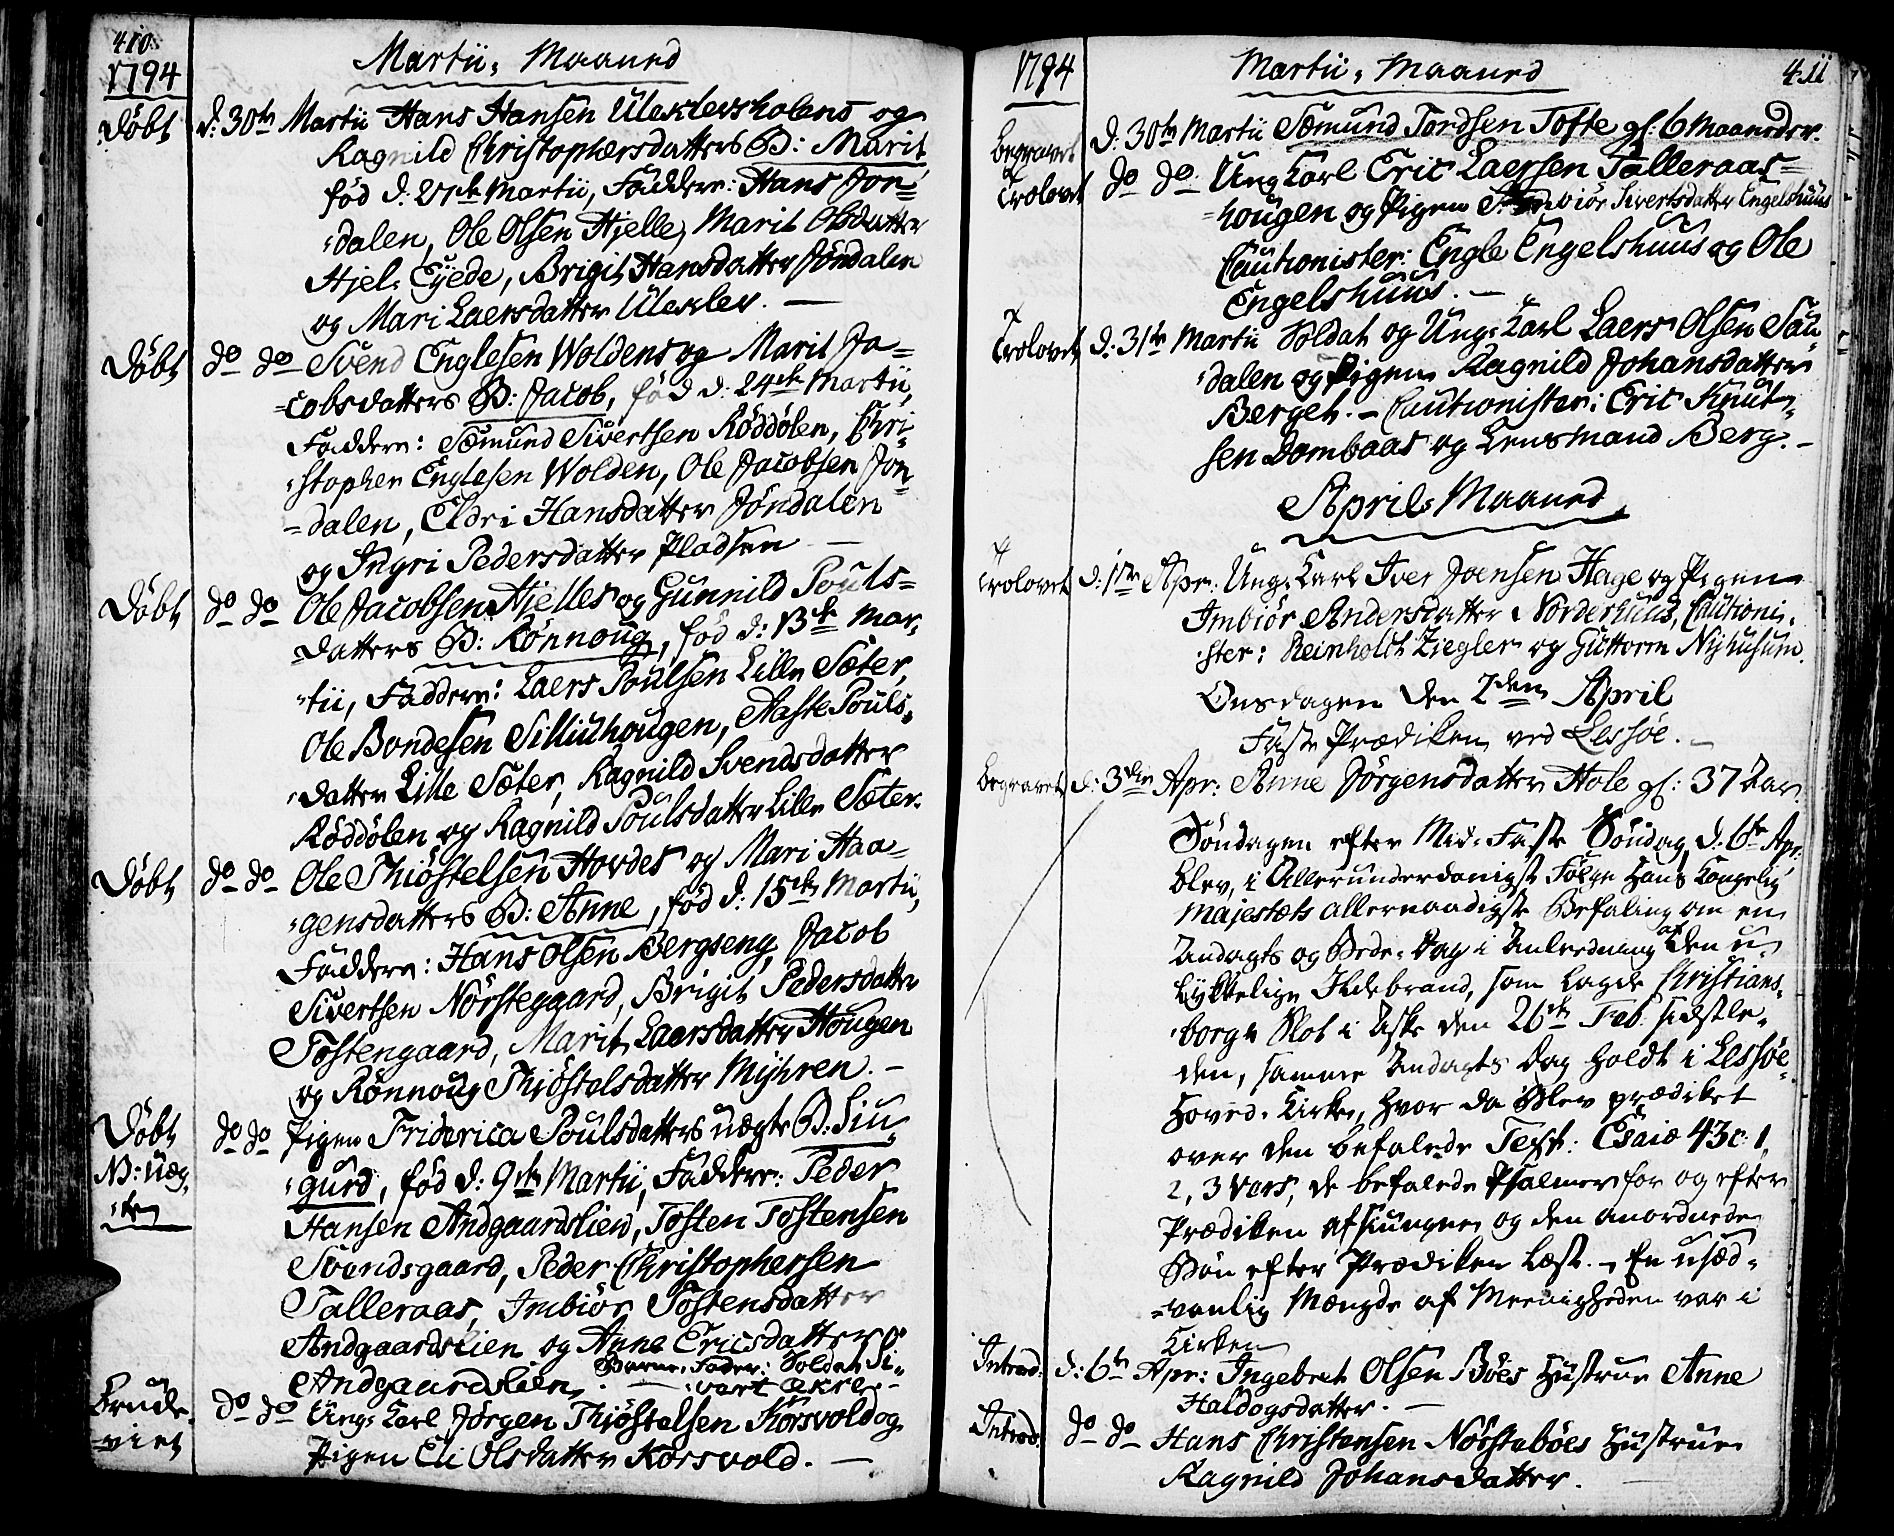 410.
1794
Martii, Maaned
Döbt d: 30te Martii Hans Hansen Uleklevsholens og
Ragnild Christophersdatters B: Marit
fød d: 21de Martii, Faddere: Hans Jon=
=dalen, Ole Olsen Hjelle, Marit Olsdatter
Hjel: Eyede, Brigit Hansdatter Jöndalen
og Mari Laersdatter Uleklev. —
Döbt do do Svend Englesen Woldens og Marit Ja=
=cobsdatters B: Jacob, fød d. 24de Martii,
Faddere: Sæmund Sivertsen Röddölen, Chri=
=stopher Englesen Wolden, Ole Jacobsen Jon=
=dalen, Eldri Hansdatter Jöndalen
og Ingri Pedersdatter Pladsen —
Döbt do do Ole Jacobsen Hjelles og Gunnild Pouls=
=datters B: Rönnoug, fød d: 13de Mar=
=tii, Faddere: Laers Poulsen Lille Sæter,
Ole Bondesen Silliuhougen, Aaste Pouls=
=datter Lille Sæter, Ragnild Svendsdatter
Röddölen og Ragnild Poulsdatter Lille Sæter.
Döbt do do Ole Thiöstelsen Hovdes og Mari Haa=
=gensdatters B: Anne, fød d: 15de Martii,
Faddere: Hans Olsen Bergseng, Jacob
Sivertsen Nörstegaard, Brigit Pedersdatter
Tostengaard, Marit Laersdatter Hougen
og Rönnoug Thiöstelsdatter Myhren. —
Döbt do do Pigen Friderica Poulsdatters uægte B: Siu=
N: uæg= =gurd, fød d: 9de Martii, Faddere: Peder
=te Hansen Andgaardslien, Tosten Tostensen
Svendsgaard, Peder Christophersen
Talleraas, Imbiör Tostensdatter
Andgaardslien og Anne Ericsdatter
Andgaardslien. Barne-Fader: Soldat Si=
=vert Ekre. —
Brude= do do Ung-Karl Jörgen Thiöstelsen Korsvold og
=viet Pigen Eli Olsdatter Korsvold. —
1794
Martii, Maaned
411
Begravet d: 30te Martii Sæmund Tordsen Tofte gl: 6 Maaneder.
Trolovet do do Ung Karl Eric Laersen Talleraas=
=hougen og Pigen Imbiör Sivertsdatter Engelshuus
Cautionister: Engle Engelshuus og Ole
Engelshuus. —
Trolovet d: 31te Martii Soldat og Ung-Karl Laers Olsen Sau=
=dalen og Pigen Ragnild Johansdatter
Berget. — Cautionister: Eric Knut=
sen Dombaas og Lensmand Berg. —
April, Maaned
Trolovet d: 1te Apr: Ung-Karl Iver Joensen Hage og Pigen
Imbiör Andersdatter Norderhuus, Cautioni=
=ster: Reinholdt Ziegler og Guttorm Nyhusum.
Onsdagen den 2den April
Faste Prædiken ved Lessöe. —
Begravet d: 3die Apr: Anne Jörgensdatter Hole gl: 37 Aar.
Söndagen efter Mid-Faste Söndag d: 6te Apr:
blev, i Allerunderdanigst Fölge Hans Kongelig
Majestæts allernaadigste Befaling om en
Andagts og Bede-Dag i Anledning af den u=
lykkelige Ildebrand, som lagde Christians=
=borgs Slot i Aske den 26de Feb: sidstle=
den, samme Andagts Dag holdt i Lessöe
Hoved-Kirke, hvor da blev prædiket
over den befalede Text: Esaiæ 43 c: 1,
2, 3 Vers, de befalede Psalmer for og efter
Prædiken afsiungne og den anordnede
Bön efter Prædiken læst. — En usæd=
=vanlig Mængde af Meenigheden var i
Kirken
Introd: d: 6te Apr: Ingebret Olsen Böes Hustrue Anne
Haldogsdatter. —
Introd: do do Hans Christensen Nörsteböes Hustrue
Ragnild Johansdatter. —